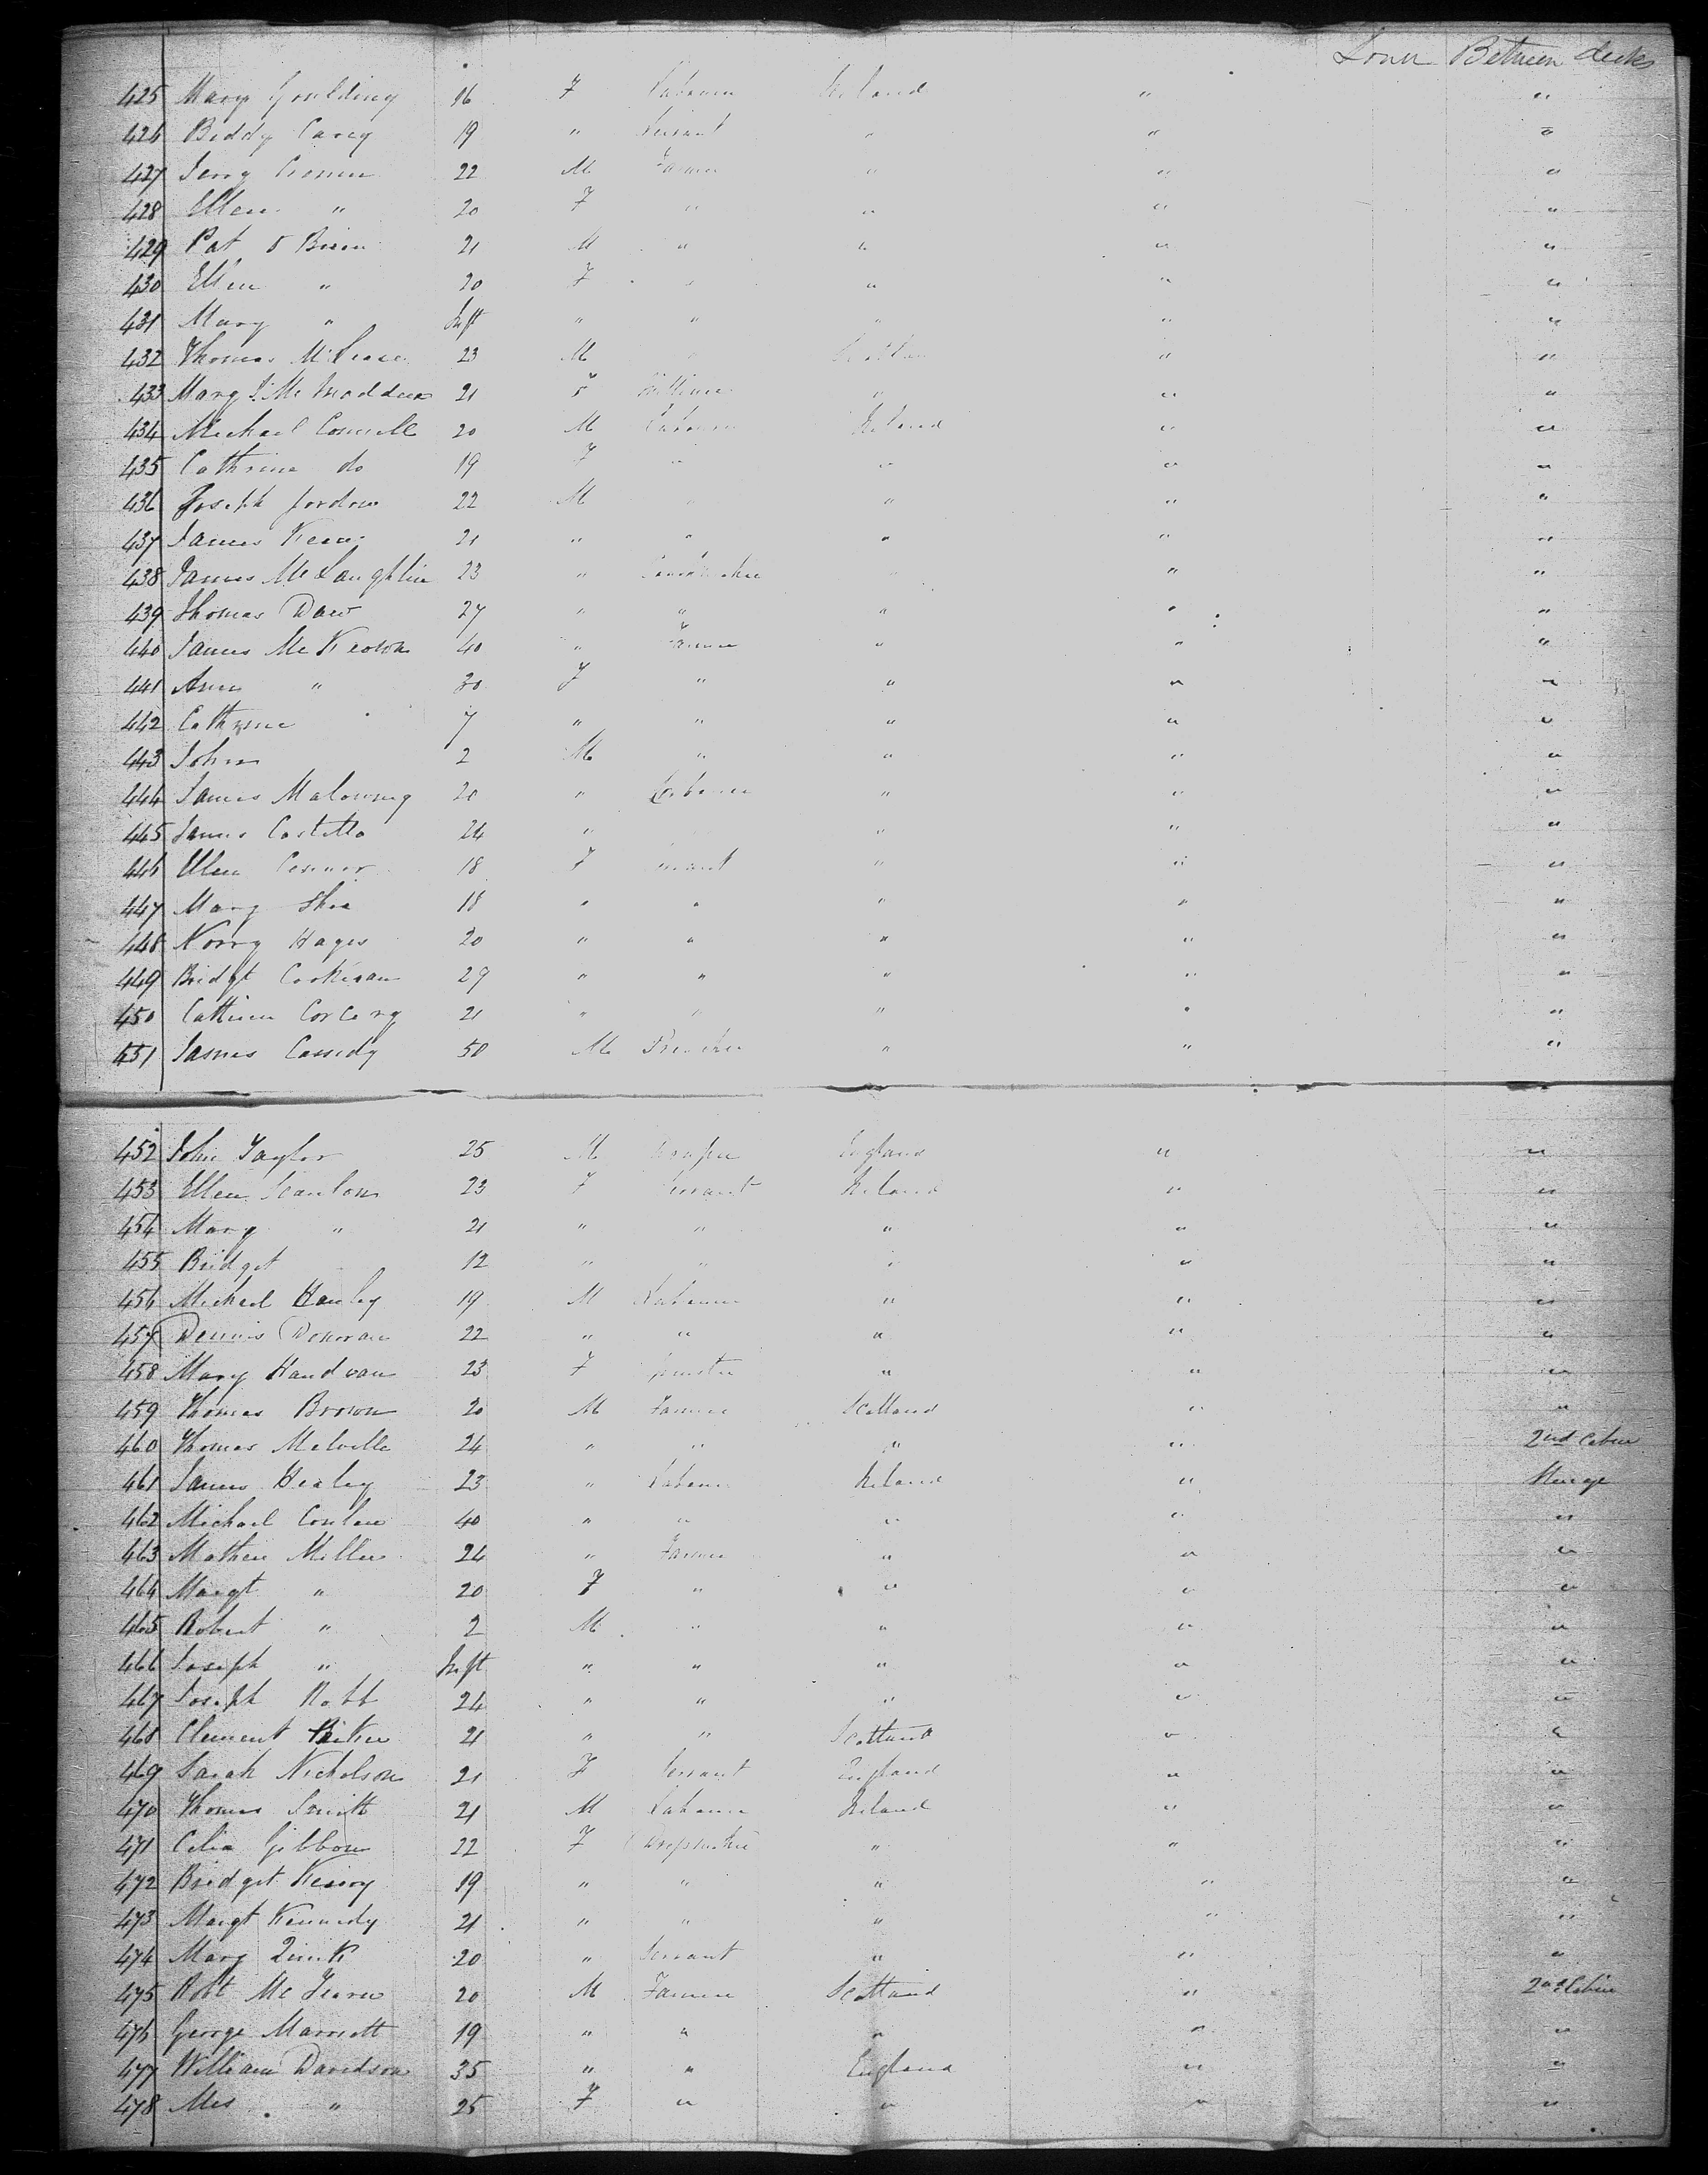 Lower Between decks
425 Mary Goulding 16 F Labourer Ireland " "
426 Biddy Carey 19 " Servant " " "
427 Jerry Cronin 22 M Farmer " " "
428 Ellen " 20 F " " " "
429 Pat O Brien 21 M " " " "
430 Ellen " 20 F " " " "
431 Mary " Inft " " " " "
432 Thomas 23 M " " "
433 Mary 21 " " "
434 Michael Connell 20 M Labourer Ireland " "
435 Cathrine do 19 F " " " "
436 Joseph Jordon 22 M " " " "
437 James 21 " " " " "
438 James McLaughlin 23 " " "
439 Thomas Daw 27 " " " " "
440 James McKeown 40 " Farmer " " "
441 Ann " 30 F " " " "
442 Cathrine 7 " " " " "
443 John 2 M " " " "
444 James Malowney 20 " Labourer " " "
445 James Costello 24 " " " "
446 Ellen Connor 18 F Servant " " "
447 Mary Shea 18 " " " " "
448 Norry Hayes 20 " " " " "
449 Bridgt 29 " " " " "
450 Corcery 21 " " " " "
451 James Cassidy 50 M " " "
452 John Taylor 25 M England " "
453 Ellen Scanlon 23 F Servant Ireland " "
454 Mary " 21 " " " " "
455 Bridget 12 " " " " "
456 Michael Hanley 19 M Labourer " " "
457 Dennis Donovan 22 " " " " "
458 Mary 23 F " " "
459 Thomas Brown 20 M Farmer Scotland " "
460 Thomas Melville 24 " " " " 2nd Cabin
461 James Healey 23 " Labourer Ireland " Steerage
462 Michael Conlen 40 " " " " "
463 Mathew Miller 24 " Farmer " " "
464 Margt " 20 F " " " "
465 Robert " 2 M " " " "
466 Joseph " Inft " " " " "
467 Joseph Robb 24 " " " " "
468 Clement 21 " " Scotland " "
469 Sarah Nicholson 21 F Servant England " "
470 Thomas Smith 21 M Labourer Ireland " "
471 Celia Gibbons 22 F Dressmaker " " "
472 Bridget 19 " " " " "
473 Margt Kennedy 21 " " " " "
474 Mary Quirk 20 " Servant " " "
475 Robt 20 M Farmer Scotland " 2nd Cabin
476 George Marriott 19 " " " " "
477 William Davidson 35 " " England " "
478 Mrs " 25 F " " " "